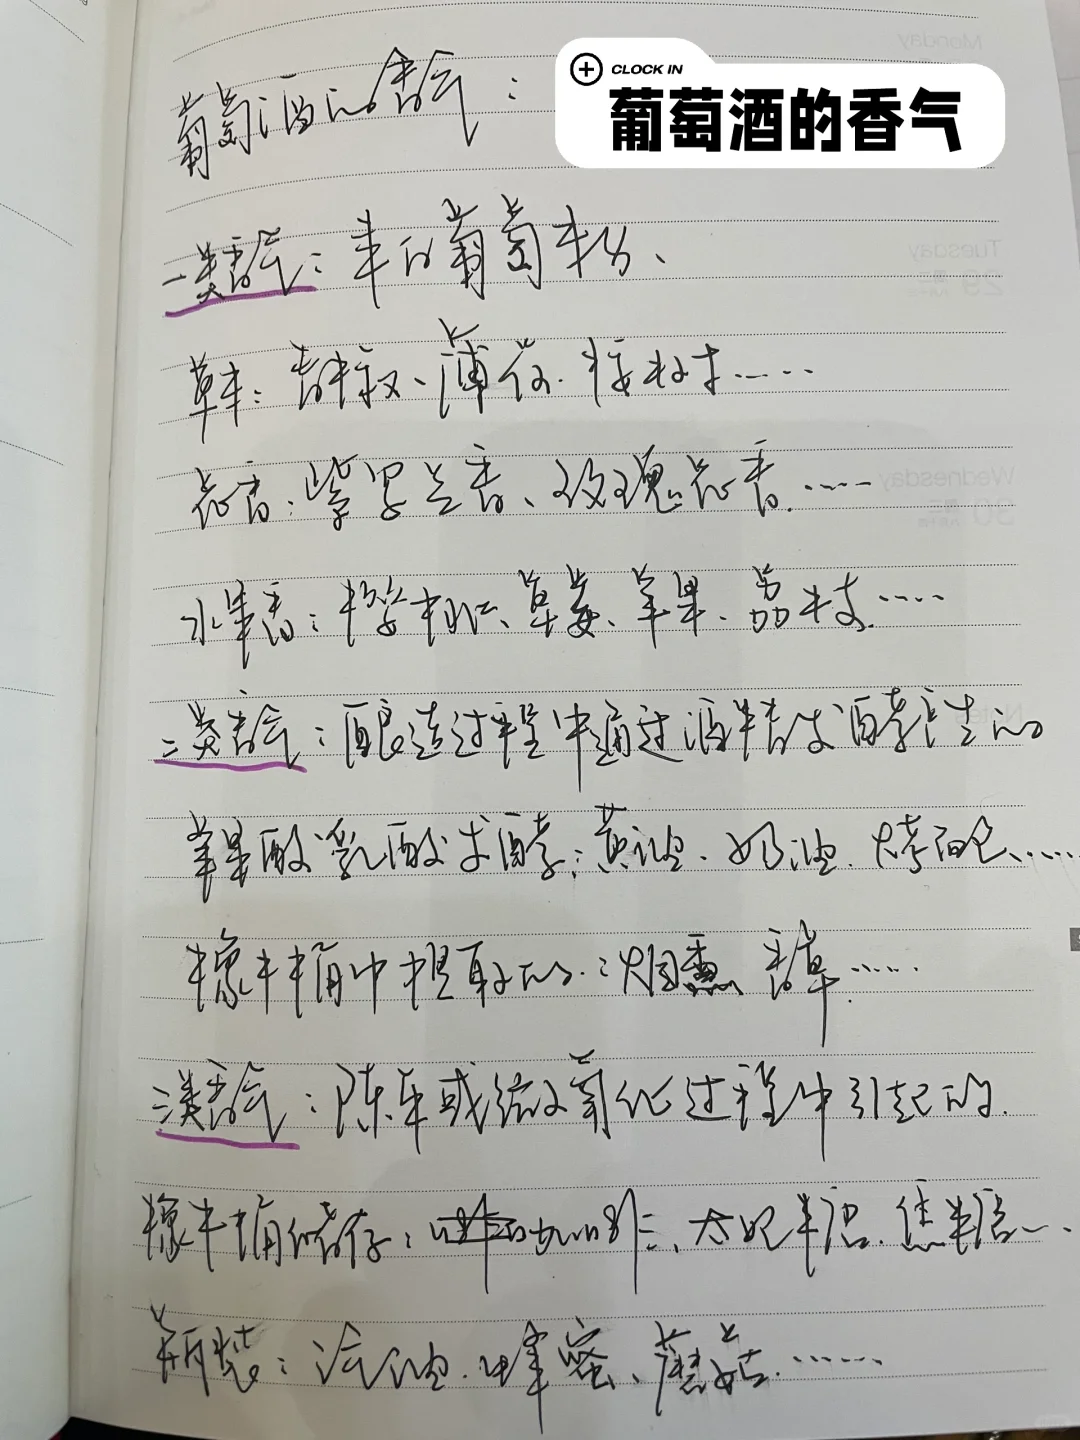 CLOCK IN
葡萄酒的香气
葡萄酒的香气：
一类香气：来自葡萄本身、
草本：青草、薄荷、
花香：紫罗兰香、玫瑰花香……
水果香：柠檬、草莓、苹果、荔枝……
二类香气：酿造过程中通过酒精发酵产生的
苹果酸乳酸发酵：黄油、奶油、烤面包……
橡木桶中提取的：烟熏 香草……
三类香气：陈年或缓慢氧化过程中引起的
橡木桶储存：咖啡、太妃糖、焦糖……
瓶装：汽油、蜂蜜、蘑菇……
Monday
Tuesday
29 周二
Wednesday
30 周三
Notes